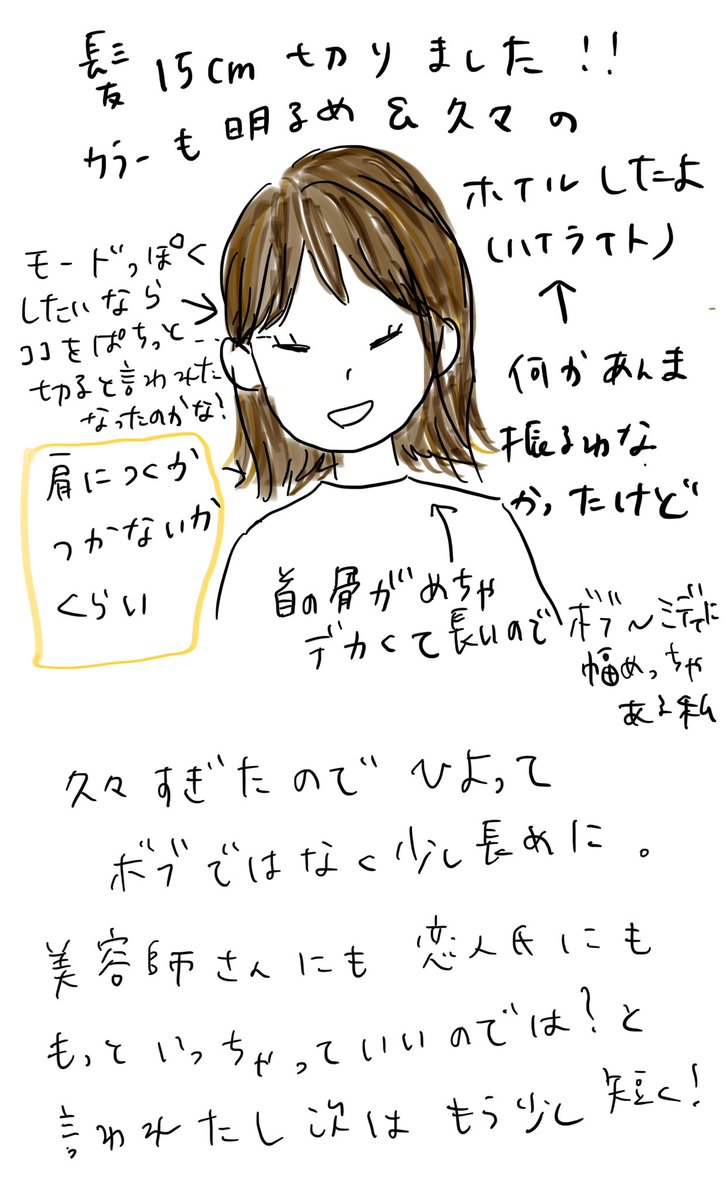 髪15cm 切りました!!
カラーも明るめ&久々の
ホイルしたよ
(ハイライト)
↑
何かあんま
振るわな
かったけど
モードっぽく
したいなら
ココをぱちっと
切ると言われた
なったのかな!
肩につくか
つかないか
くらい
首の骨がめちゃ
デカくて長いので
ボブ~ミディに
幅めっちゃ
ある私
久々すぎたのでひよって
ボブではなく少し長めに。
美容師さんにも恋人氏にも
もっといっちゃっていいのでは?と
言われたし次はもう少し短く!